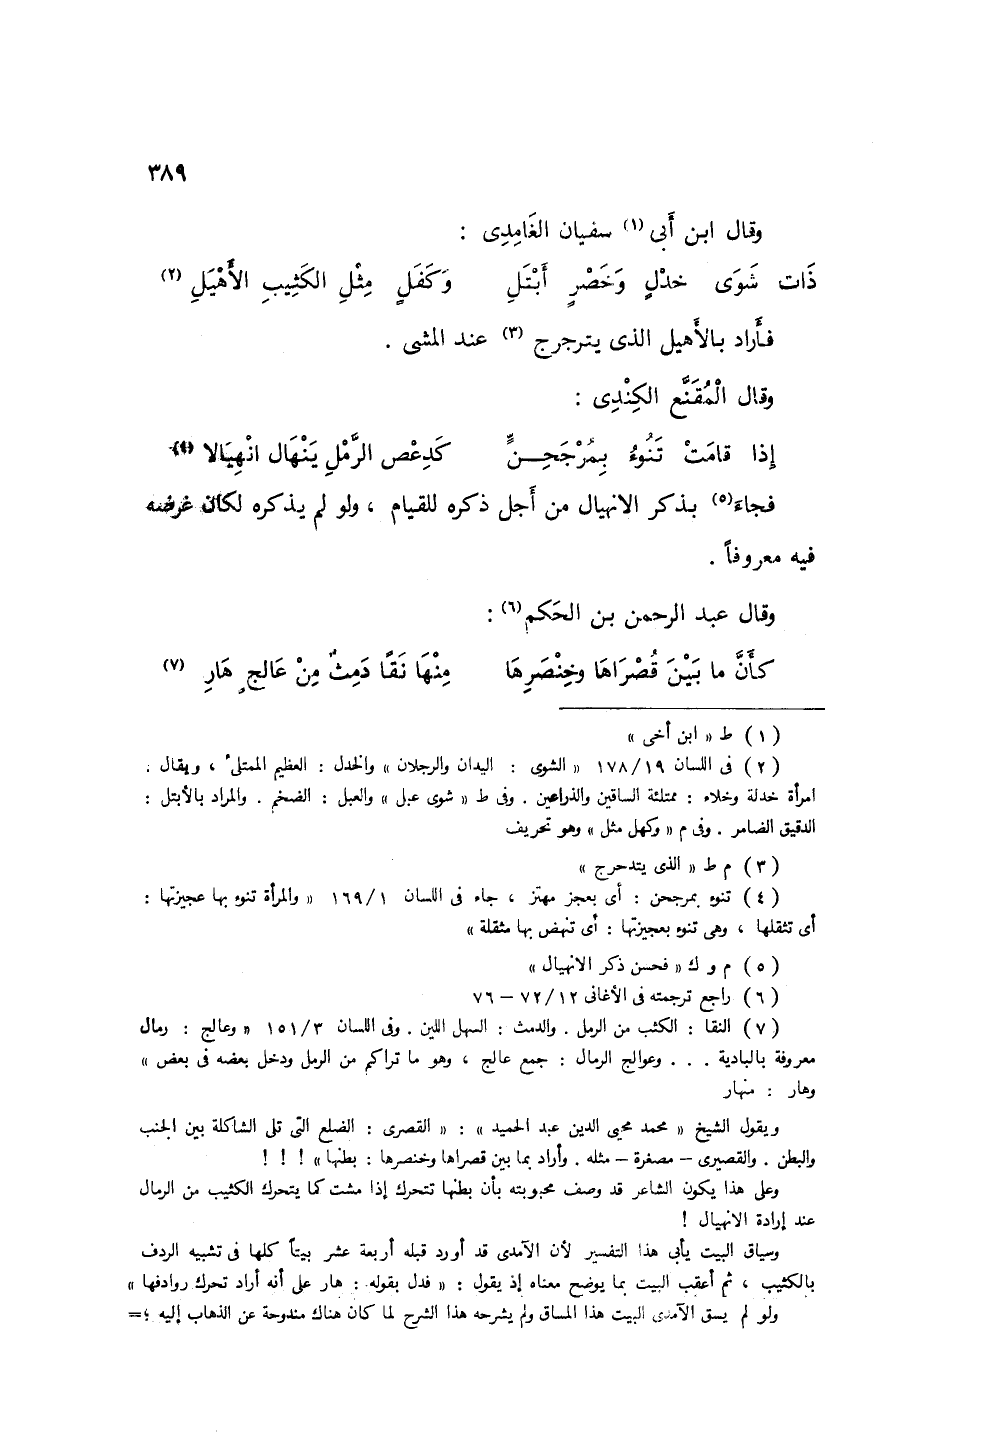 ٣٨٩
وقال ابن أَبى (١) سفيان الغَامِدِى :
ذَات شَوَى خدْلٍ وَخَصْرٍ أَبْتَلِ وَكَفَلٍ مِثْلِ الكَثِيبِ الأَهْيَلِ (٢)
فأَراد بالأَهيل الذى يترجرج (٣) عند المشى .
وقال الْمُقَنَّع الكِنْدِى :
إذا قامَتْ تَنُوءُ بِمُرْجَحِنٍّ كَدِعْص الرَّمْلِ يَنْهَال انْهِيَالا (٤)
فجاءَ (٥) بذكر الانهيال من أَجل ذكره للقيام ، ولو لم يذكره لكان غرضه
فيه معروفاً .
وقال عبد الرحمن بن الحَكم (٦) :
كأَنَّ ما بَيْنَ قُصْرَاهَا وخِنْصَرِهَا مِنْهَا نَقًا دَمِثٌ مِنْ عَالجٍ هَارِ (٧)
(١) ط « ابن أخى »
(٢) فى اللسان ١٧٨/١٩ « الشوى : اليدان والرجلان » والخدل : العظيم الممتلىء ، ويقال .
امرأة خدلة وخلاء : ممتلئة الساقين والذراعين . وفى ط « شوى عبل » والعبل : الضخم . والمراد بالأبتل :
الدقيق الضامر . وفى م « وكهل مثل » وهو تحريف
(٣) م ط « الذى يتدحرج »
(٤) تنوء بمرجحن : أى بعجز مهتز ، جاء فى اللسان ١٦٩/١ « والمرأة تنوء بها عجيزتها :
أى تثقلها ، وهى تنوء بعجيزتها : أى تنهض بها مثقلة »
(٥) م و ك « فحسن ذكر الانهيال »
(٦) راجع ترجمته فى الأغانى ٧٢/١٢ – ٧٦
(٧) النقا : الكثب من الرمل . والدمث : السهل اللين . وفى اللسان ١٥١/٣ « وعالج : رمال
معروفة بالبادية . . . وعوالج الرمال : جمع عالج ، وهو ما تراكم من الرمل ودخل بعضه فى بعض »
وهار : منهار
ويقول الشيخ « محمد محيى الدين عبد الحميد » : « القصرى : الضلع التى تلى الشاكلة بين الجنب
والبطن . والقصيرى – مصغرة – مثله . وأراد بما بين قصراها وخنصرها : بطنها » ! ! !
وعلى هذا يكون الشاعر قد وصف محبوبته بأن بطنها تتحرك إذا مشت كما يتحرك الكثيب من الرمال
عند إرادة الانهيال !
وسياق البيت يأبى هذا التفسير لأن الآمدى قد أورد قبله أربعة عشر بيتاً كلها فى تشبيه الردف
بالكثيب ، ثم أعقب البيت بما يوضح معناه إذ يقول : « فدل بقوله : هار على أنه أراد تحرك روادفها »
ولو لم يسق الآمدى البيت هذا المساق ولم يشرحه هذا الشرح لما كان هناك مندوحة عن الذهاب إليه ؛=